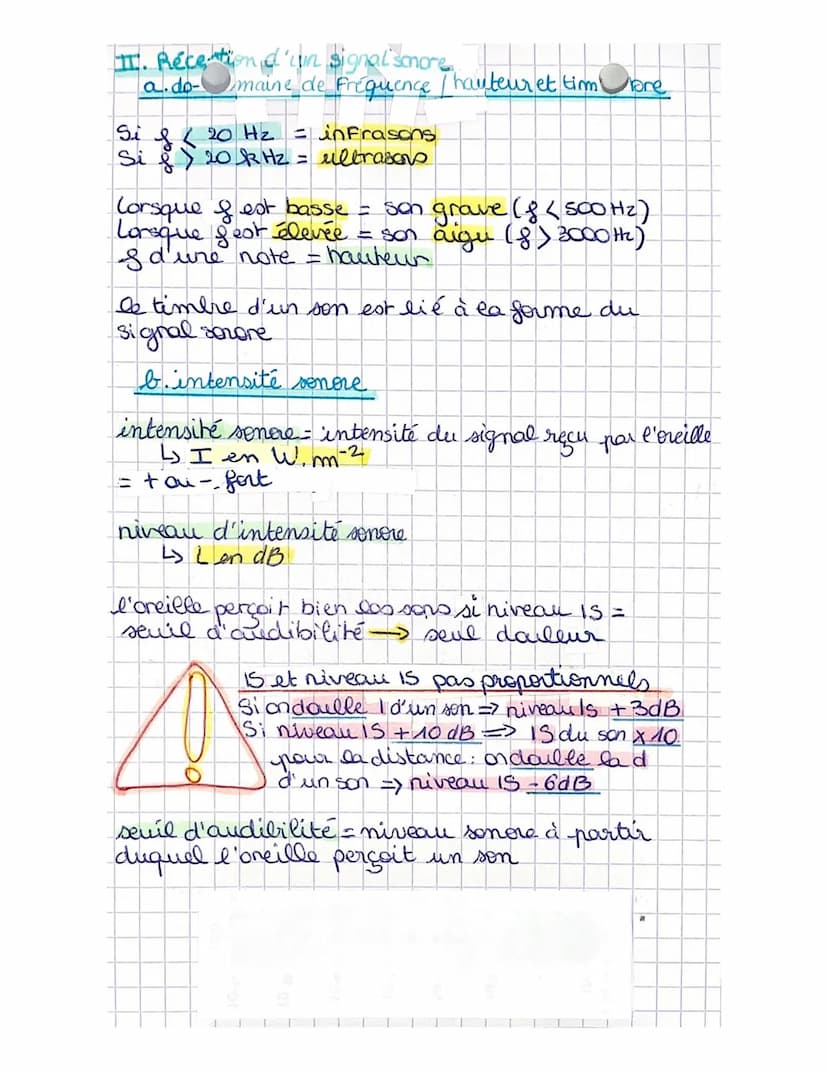 II. Réception d'un signal sonore
a. domaine de fréquence / hauteur et timbre
Si f < 20 Hz = infrasons
Si f > 20 kHz = ultrasons
Lorsque f est basse = son grave (f < 500 Hz)
Lorsque f est élevée = son aigu (f > 3000 Hz)
f d'une note = hauteur
le timbre d'un son est lié à la forme du
signal sonore
b. intensité sonore
intensité sonore = intensité du signal reçu par l'oreille
↳ I en W.m⁻²
= + ou -. fort
niveau d'intensité sonore
↳ L en dB
l'oreille perçoit bien les sons si niveau IS =
seuil d'audibilité → seuil douleur
IS et niveau IS pas proportionnels
Si on double I d'un son => niveau Is +3dB
Si niveau IS +10 dB => IS du son x10
pour la distance : on double la d
d'un son => niveau IS -6dB
seuil d'audibilité = niveau sonore à partir
duquel l'oreille perçoit un son